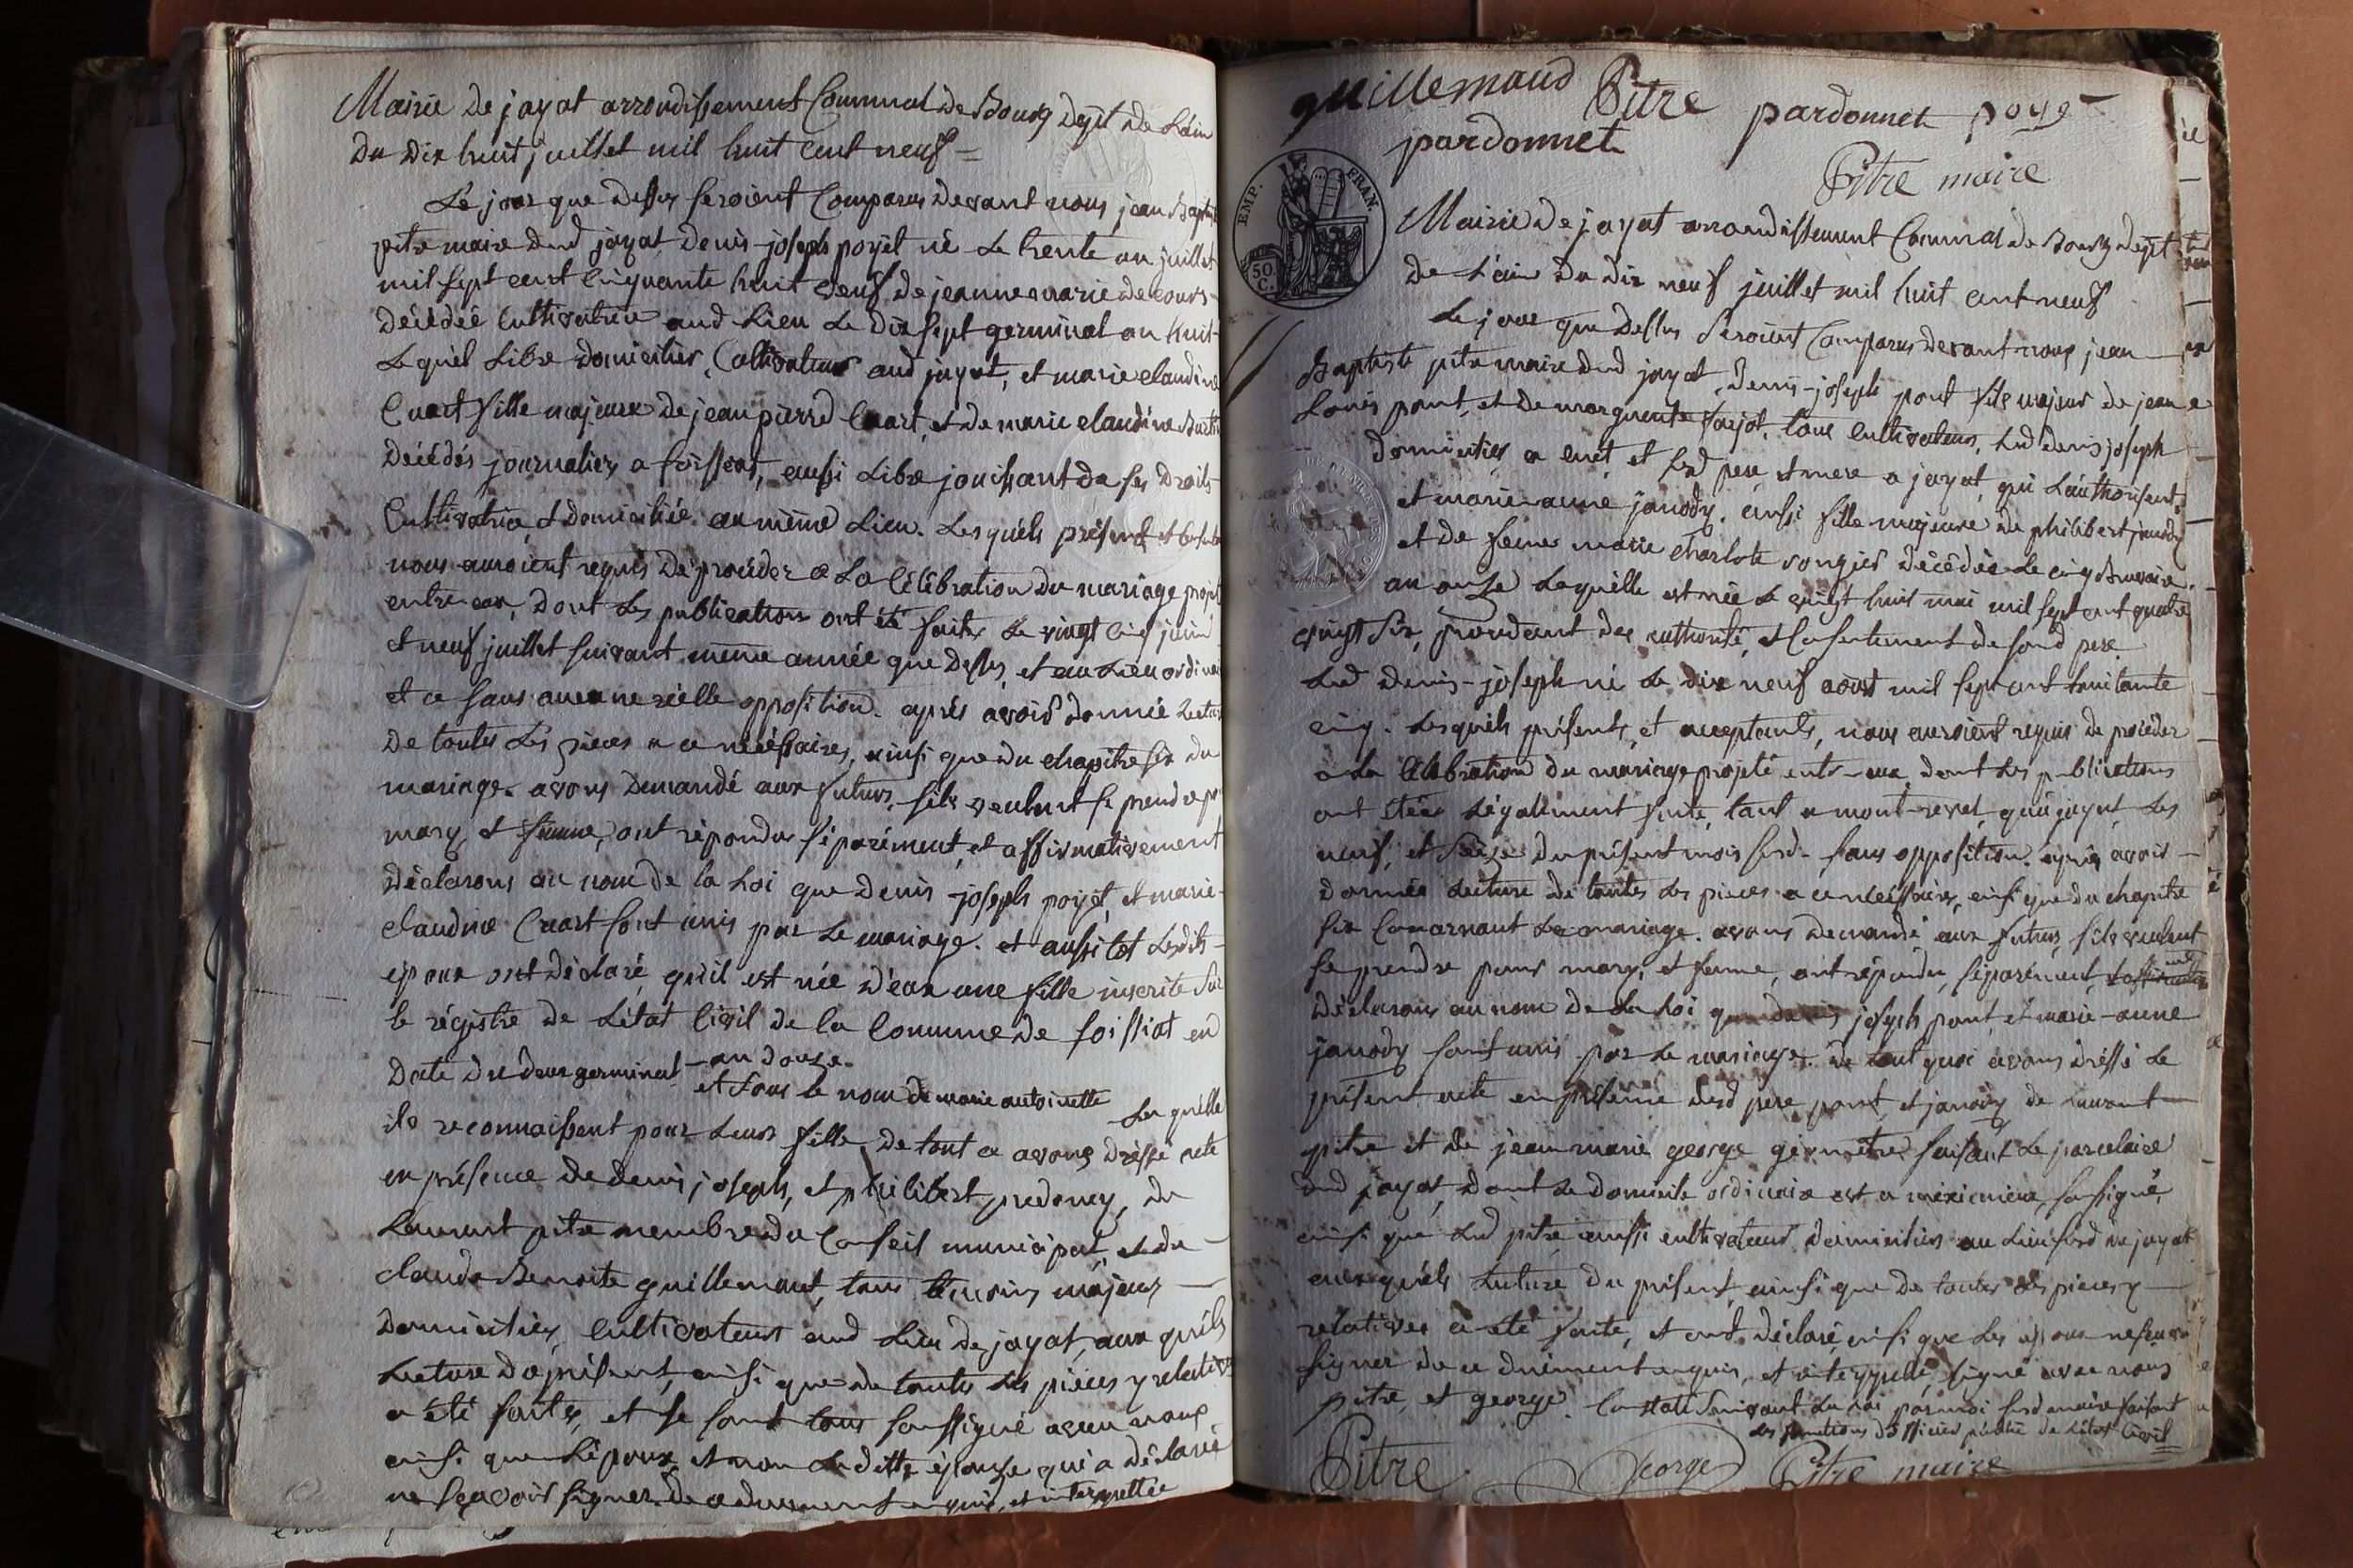 Mairie de jayat arrondissement Communal de Bourg dept de Lain
du dix huit juillet mil huit cent neuf =
Le jour que dessus seroient Comparus devant nous jean Baptiste
pitre maire dud jayat, denis-joseph poyet né le trente un juillet
mil sept cent Cinquante huit veuf de jeanne marie decours-
décédée Cultivatrice aud Lieu le dix sept germinal an huit-
Lequel Libre domiciliés, Cultivateur aud jayat, et marie claudine
Cuart fille majeure de jean pierre Cuart, et de marie claudine
décédés journaliers a foissiat, aussi Libre jouissant de ses droits
Cultivatrice, et domiciliée au même Lieu. Lesquels présents et
nous auroient requis de procéder a La Célébration du mariage projté
entre eux, dont les publications ont été faites le vingt cinq juin
et neuf juillet suivant même année que dessus, et au Lieu ordinai
et ce sans aucune réelle opposition. après avoir donnée Lecture
de toutes les pieces a ce nécéssaires, ainsi que du chapitre six du
mariage. avons demandé aux futurs, s'ils veulent se prendre pr
mary, et femme, ont répondu séparément, et affirmativement
déclarons au nom de la Loi que denis joseph poyet, et marie-
claudine Cuart sont unis par le mariage. et aussitot lesdits-
epoux ont déclaré qu'il est née d'eux une fille inscrite sur
le régistre de L'état Civil de la Commune de foissiat en
date du deux germinal - an douze.
et sous le nom de marie antoinette Laquelle
ils reconnaissent pour Leur fille, de tout ce avons dressé acte
en présence de denis joseph, et philibert predoney, de
Laurent pitre membre du Conseil municipal, et de
claude Benoite guillemaut, tous témoins majeurs
domiciliés, Cultivateurs aud Lieu de jayat, aux quels
Lecture du présent, ainsi que de toutes les pieces y relatives
a été faites, et se sont tous soussigné avec nous
ainsi que L'époux, et non Laditte épouse qui a déclarée
ne sçavoir signer de ce duement enquis, et interpellée
guillemaud Pitre pardonnet poyet
pardonnet
Pitre maire
EMP. FRAN.
50 C.
Mairie de jayat arrondissement Communal de Bourg dept
de L'ain du dix neuf juillet mil huit cent neuf
Le jour que dessus seroient Comparus devant nous jean
Baptiste pitre maire dud jayat, denis-joseph pont fils majeur de jean
Louis pont, et de marguerite tous cultivateurs, Led denis joseph
domiciliés a cuet, et Led pere, et mere a jayat, qui L'authorisent,
et marie-anne janody, aussi fille majeure de philibert janody
et de feue marie charlote décédée le cinq brumaire
an onze Laquelle est née le vingt huit mai mil sept cent quatre
vingt six, procedant de authorité, et Consentement de sond pere
Led denis-joseph né le dix neuf aoust mil sept cent huitante
cinq. Lesquels présents, et acceptants, nous auroient requis de procéder
a La Célébration du mariage projeté entr-eux, dont les publications
ont étées Légallement faite, tant a mont-revel, qu'a jayat, les
neuf, et seize du présent mois susd- sans opposition. après avoir-
donnée Lecture de toutes les pieces a ce nécéssaires, ainsi que du chapitre
six Concernant Le mariage. avons demandé aux futurs, s'ils veulent
se prendre pour mary, et femme, ont répondu, séparément,
déclarons au nom de La Loi que denis joseph pont, et marie-anne
janody sont unis par le mariage. de tout quoi avons dressé le
présent acte en présence desd pere pont, et janody de Laurent
pitre et de jean marie george géomètre faisant le parcelaire
aud jayat, dont Le domicile ordinaire est a soussigné,
ainsi que Led pitre, aussi cultivateur domiciliés au Lieu susd de jayat
auxquels Lecture du présent, ainsi que de toutes les pieces y
rélatives a été faite, et ont déclaré, ainsi que les époux
signer de ce duement enquis, et interppellé, signé avec nous
pitre, et george. Constaté suivant La Loi par moi susd maire faisant
les fonctions d'officier public de L'état Civil
Pitre George Pitre maire